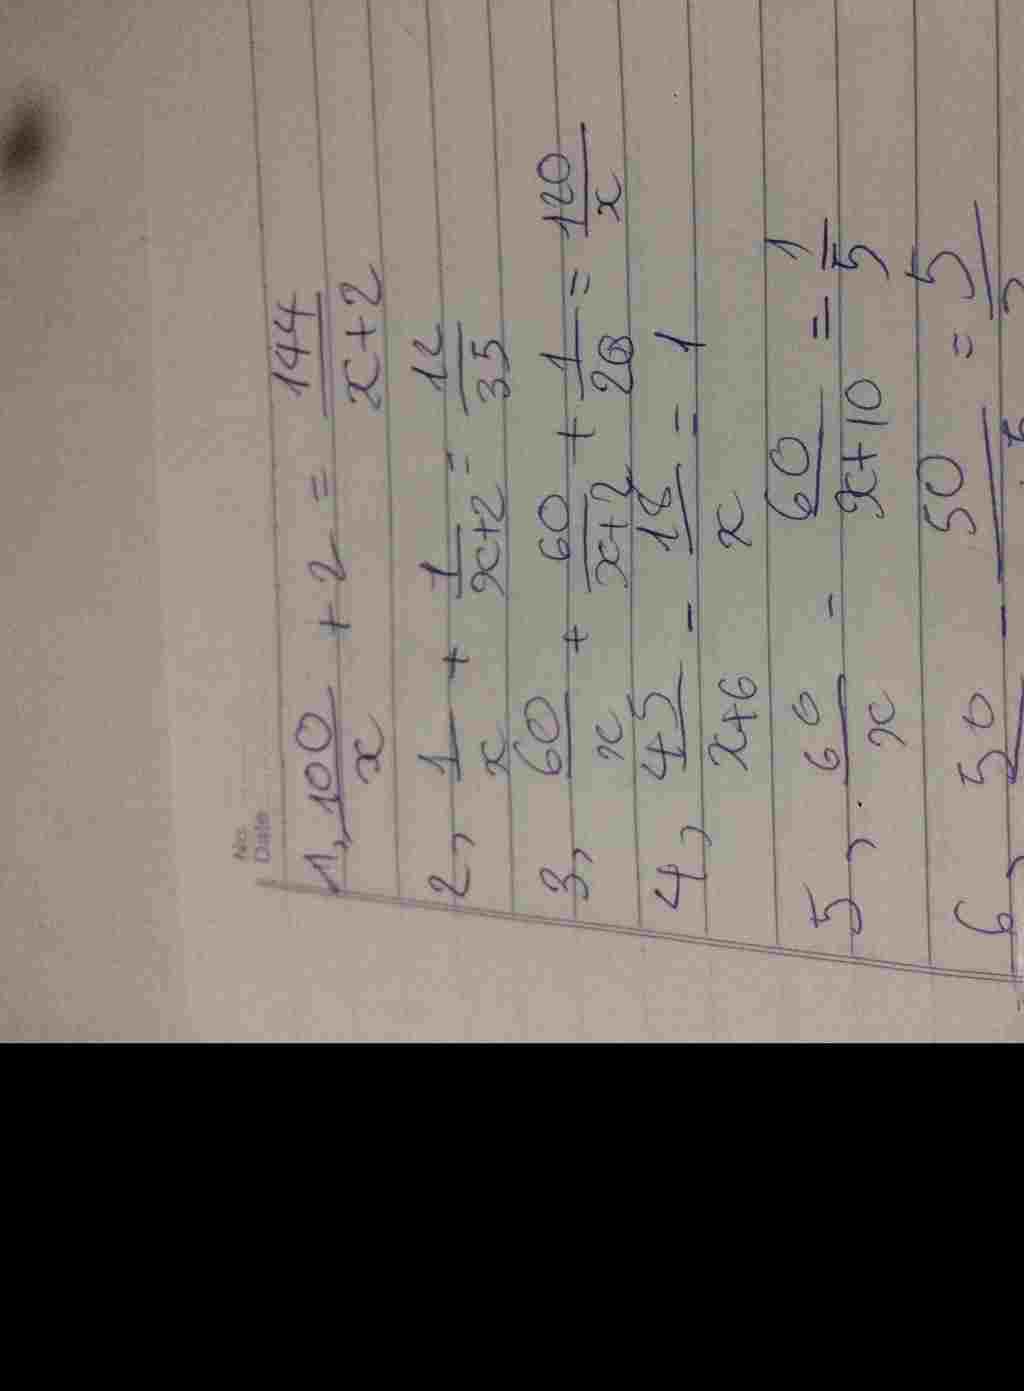 No.
Date
1, 100/x + 2 = 144/(x+2)
2, 1/x + 1/(x+2) = 12/35
3, 60/x + 60/(x+2) + 1/20 = 120/x
4, 45/(x+6) - 18/x = 1
5, 60/x - 60/(x+10) = 1/5
6, 50 - 50 = 5